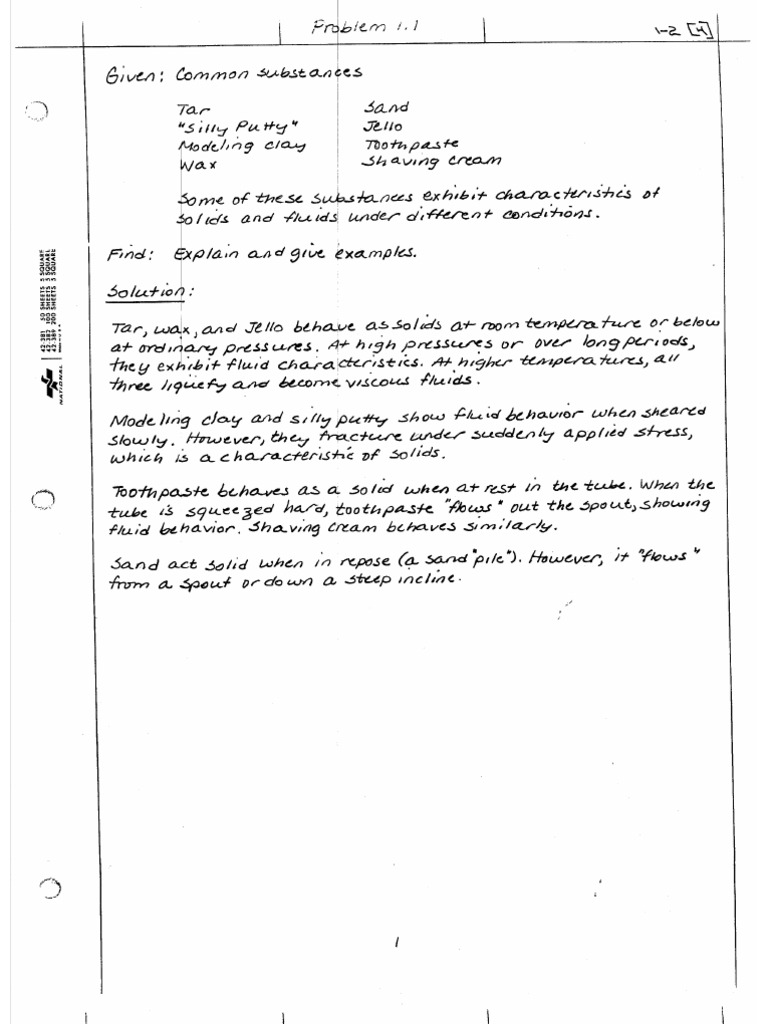 Problem 1.1
1-2 [4]
Given: Common substances
Tar Sand
"Silly Putty" Jello
Modeling clay Toothpaste
Wax Shaving cream
Some of these substances exhibit characteristics of
solids and fluids under different conditions.
Find: Explain and give examples.
Solution:
Tar, wax, and Jello behave as solids at room temperature or below
at ordinary pressures. At high pressures or over long periods,
they exhibit fluid characteristics. At higher temperatures, all
three liquefy and become viscous fluids.
Modeling clay and silly putty show fluid behavior when sheared
slowly. However, they fracture under suddenly applied stress,
which is a characteristic of solids.
Toothpaste behaves as a solid when at rest in the tube. When the
tube is squeezed hard, toothpaste "flows" out the spout, showing
fluid behavior. Shaving cream behaves similarly.
Sand act solid when in repose (a sand "pile"). However, it "flows"
from a spout or down a steep incline.
42-381 50 SHEETS 5 SQUARE
42-382 100 SHEETS 5 SQUARE
42-389 200 SHEETS 5 SQUARE
NATIONAL
1